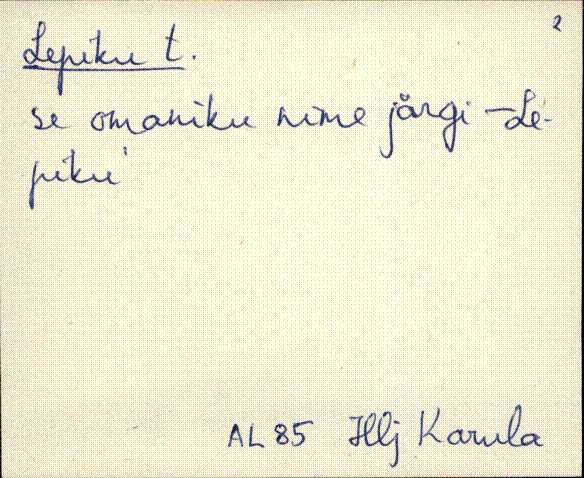 2
Lepiku t.
se omaniku nime järgi – Le-
piku'
AL 85 Hlj Karula